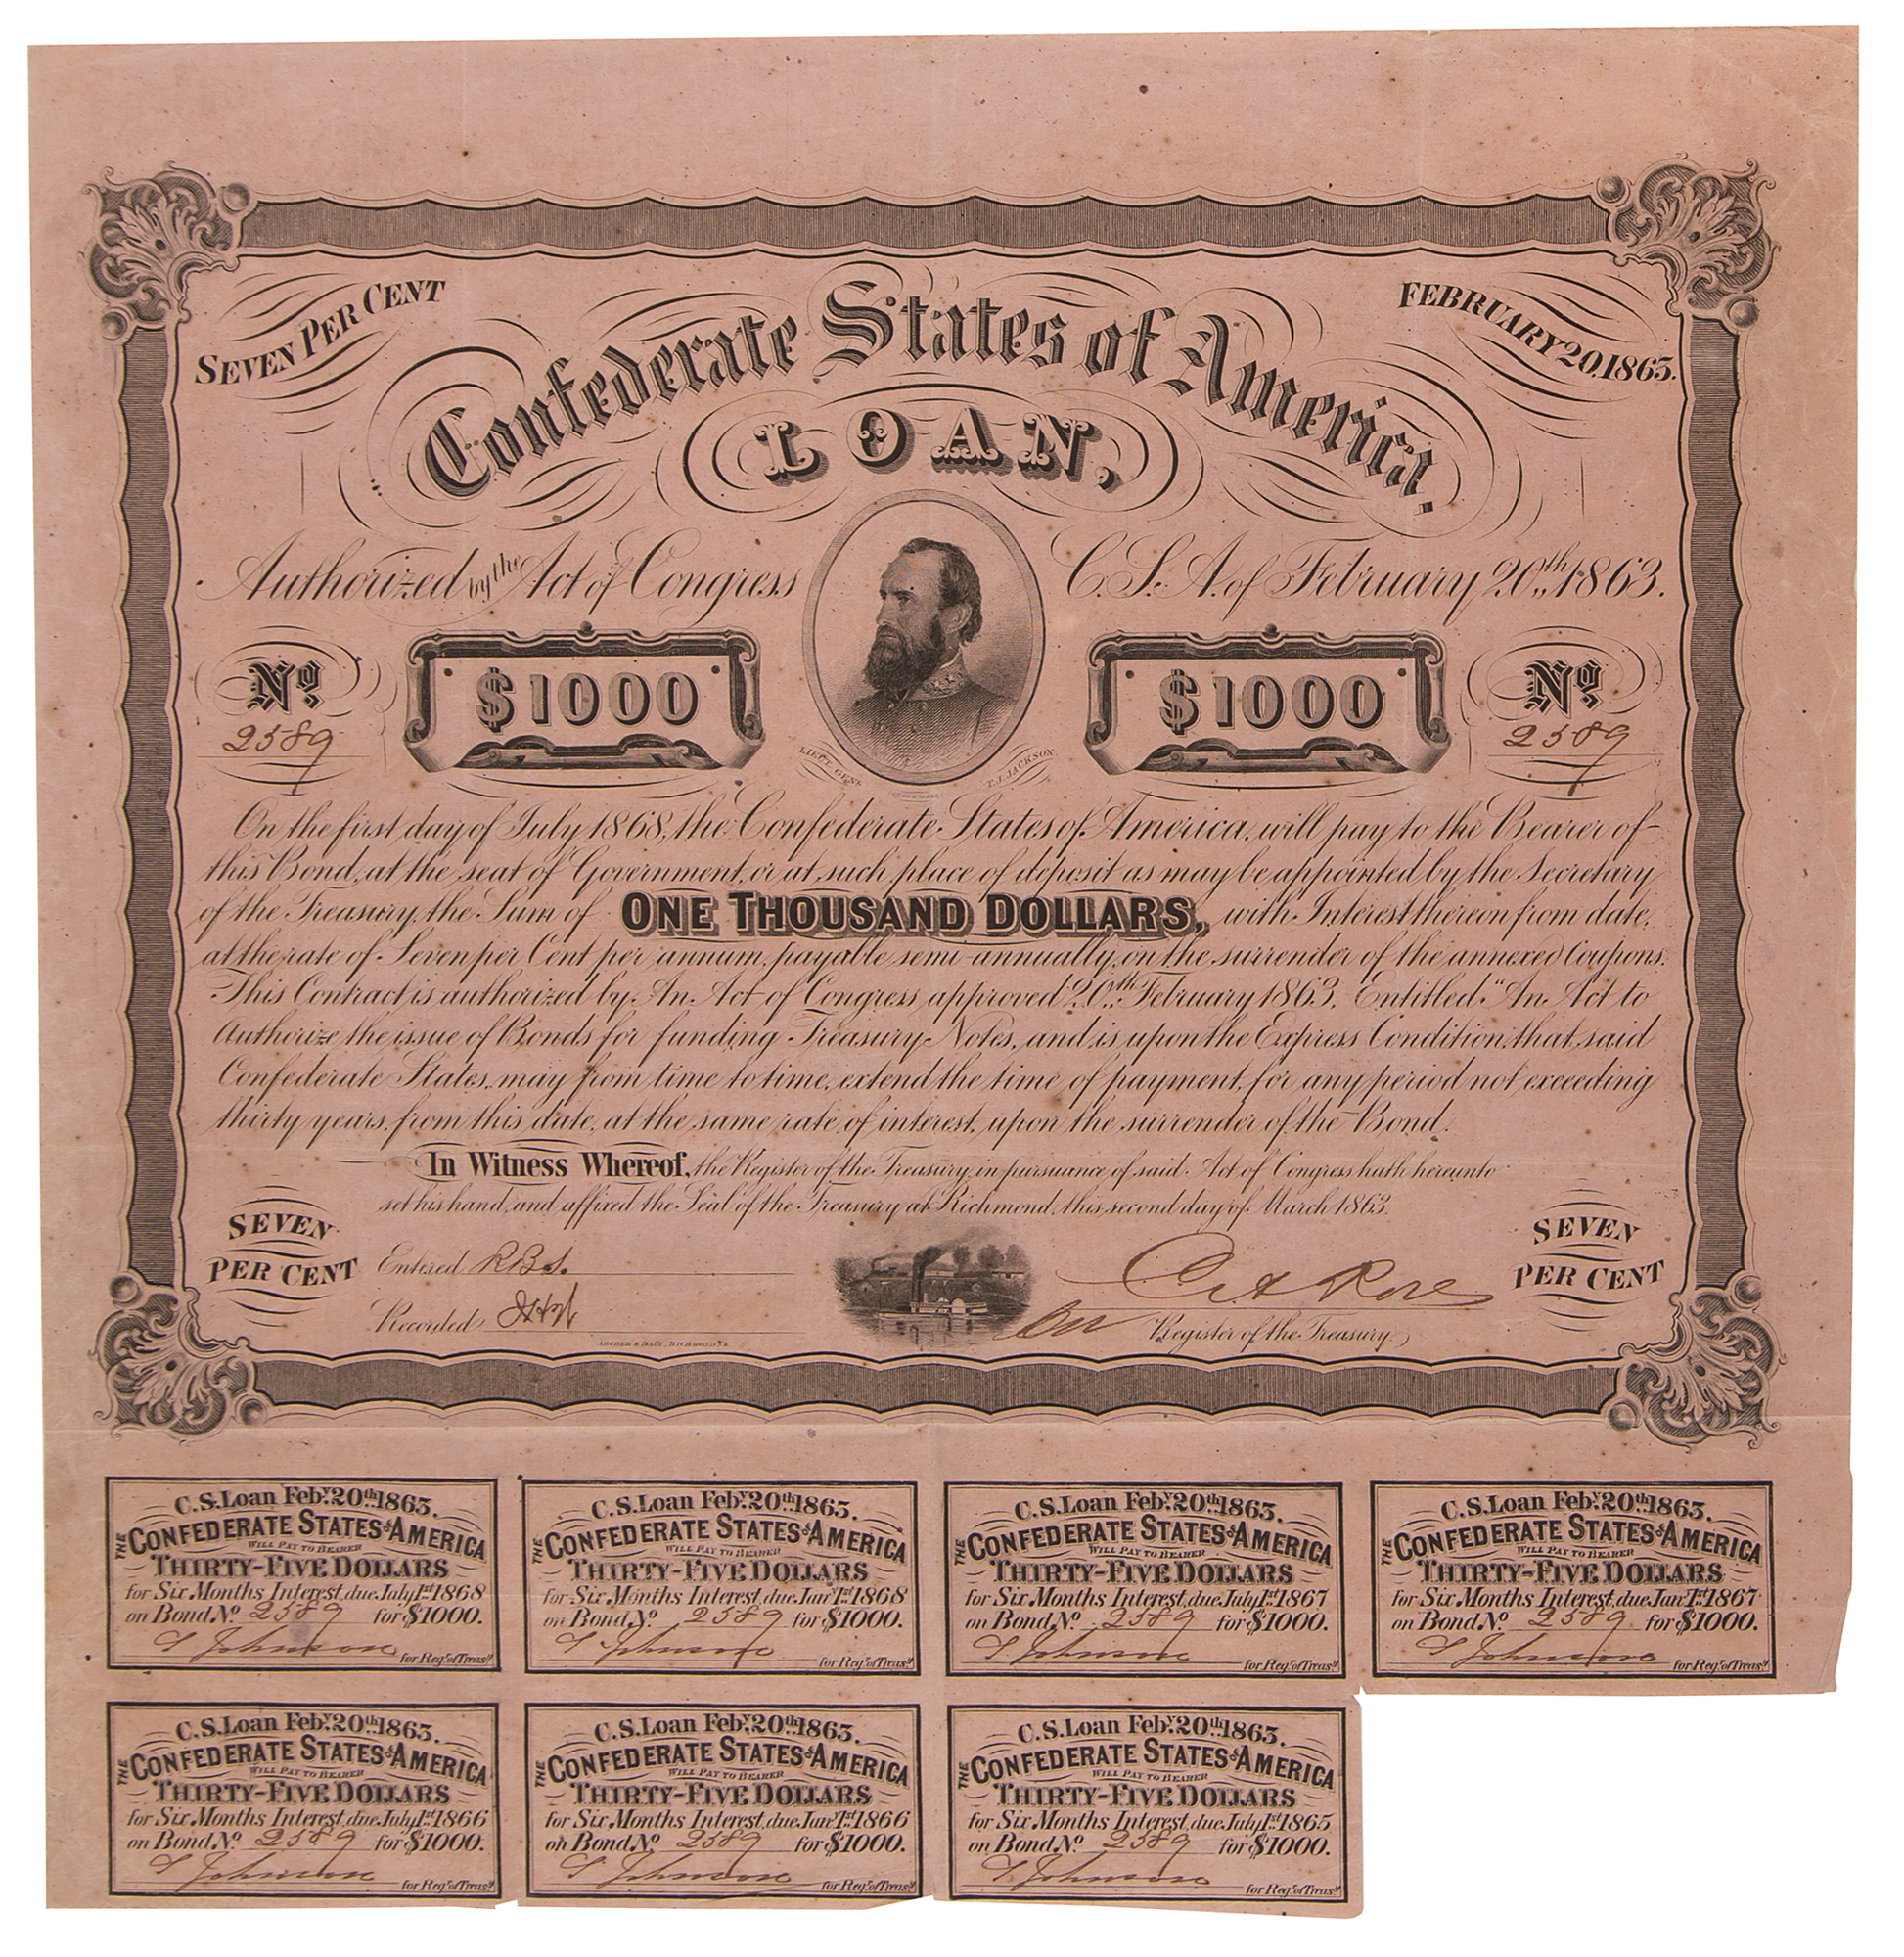 SEVEN PER CENT
FEBRUARY 20, 1863.
Confederate States of America.
LOAN,
Authorized by the Act of Congress C.S.A. of February 20th, 1863.
No. 2589
$1000
$1000
No. 2589
LIEUT. GENL. T.J. JACKSON
On the first day of July 1868, the Confederate States of America, will pay to the Bearer of
this Bond, at the seat of Government, or at such place of deposit as may be appointed by the Secretary
of the Treasury, the Sum of ONE THOUSAND DOLLARS, with Interest thereon from date,
at the rate of Seven per Cent per annum, payable semi-annually, on the surrender of the annexed Coupons.
This Contract is authorized by An Act of Congress, approved 20th February 1863, Entitled "An Act to
Authorize the issue of Bonds for funding Treasury Notes, and is upon the Express Condition, that said
Confederate States, may from time to time, extend the time of payment, for any period not exceeding
thirty years, from this date, at the same rate of interest, upon the surrender of the Bond.
In Witness Whereof, the Register of the Treasury, in pursuance of said Act of Congress hath hereunto
set his hand, and affixed the Seal of the Treasury at Richmond, this second day of March 1863.
SEVEN
PER CENT
Entered R.B.S.
Recorded
ARCHER & DALY, RICHMOND VA.
Rose
Register of the Treasury,
SEVEN
PER CENT
C.S. Loan Feby. 20th. 1863.
THE CONFEDERATE STATES of AMERICA
WILL PAY TO BEARER
THIRTY-FIVE DOLLARS
for Six Months Interest, due July 1st. 1868
on Bond No. 2589 for $1000.
Johnson
for Regr. of Treasy.
C.S. Loan Feby. 20th. 1863.
THE CONFEDERATE STATES of AMERICA
WILL PAY TO BEARER
THIRTY-FIVE DOLLARS
for Six Months Interest, due Jany 1st. 1868
on Bond No. 2589 for $1000.
Johnson
for Regr. of Treasy.
C.S. Loan Feby. 20th. 1863.
THE CONFEDERATE STATES of AMERICA
WILL PAY TO BEARER
THIRTY-FIVE DOLLARS
for Six Months Interest, due July 1st. 1867
on Bond No. 2589 for $1000.
Johnson
for Regr. of Treasy.
C.S. Loan Feby. 20th. 1863.
THE CONFEDERATE STATES of AMERICA
WILL PAY TO BEARER
THIRTY-FIVE DOLLARS
for Six Months Interest, due Jany 1st. 1867
on Bond No. 2589 for $1000.
Johnson
for Regr. of Treasy.
C.S. Loan Feby. 20th. 1863.
THE CONFEDERATE STATES of AMERICA
WILL PAY TO BEARER
THIRTY-FIVE DOLLARS
for Six Months Interest, due July 1st. 1866
on Bond No. 2589 for $1000.
Johnson
for Regr. of Treasy.
C.S. Loan Feby. 20th. 1863.
THE CONFEDERATE STATES of AMERICA
WILL PAY TO BEARER
THIRTY-FIVE DOLLARS
for Six Months Interest, due Jany 1st. 1866
on Bond No. 2589 for $1000.
Johnson
for Regr. of Treasy.
C.S. Loan Feby. 20th. 1863.
THE CONFEDERATE STATES of AMERICA
WILL PAY TO BEARER
THIRTY-FIVE DOLLARS
for Six Months Interest, due July 1st. 1865
on Bond No. 2589 for $1000.
Johnson
for Regr. of Treasy.